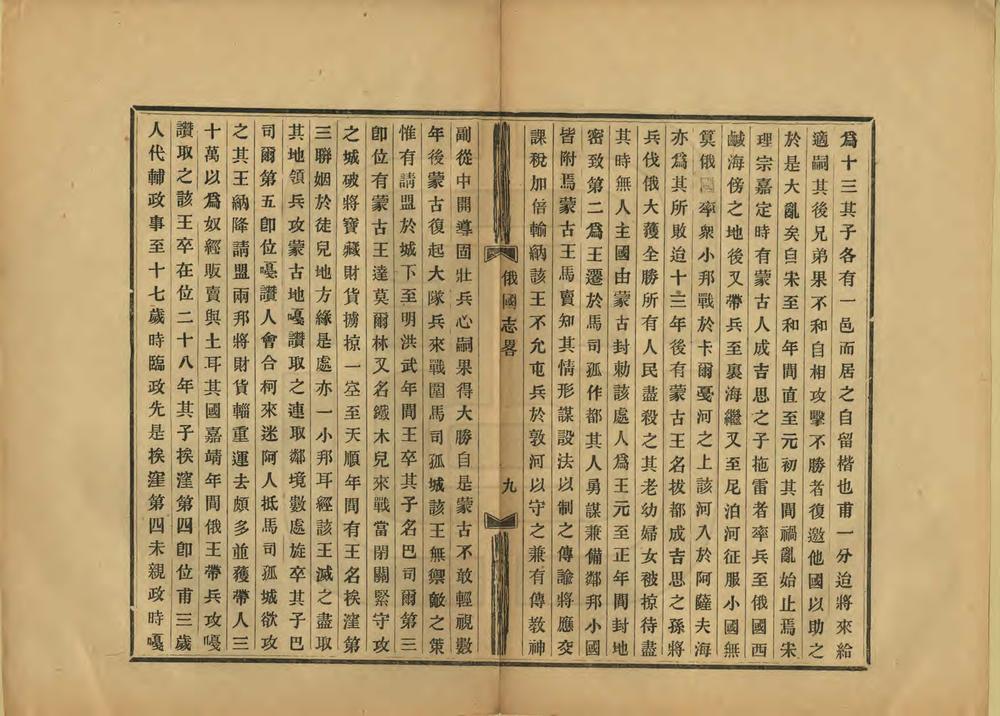 爲十三其子各有一邑而居之自留楷也甫一分迨將來給
適嗣其後兄弟果不和自相攻擊不勝者復邀他國以助之
於是大亂矣自宋至和年間直至元初其間禍亂始止焉宋
理宗嘉定時有蒙古人成吉思之子拖雷者率兵至俄國西
鹹海傍之地後又帶兵至裏海繼又至尼泊河征服小國無
算俄國率衆小邦戰於卡爾戞河之上該河入於阿薩夫海
亦爲其所敗迨十三年後有蒙古王名拔都成吉思之孫將
兵伐俄大獲全勝所有人民盡殺之其老幼婦女被掠待盡
其時無人主國由蒙古封勅該處人爲王元至正年間封地
密致第二爲王遷於馬司孤作都其人勇謀兼備鄰邦小國
皆附焉蒙古王馬賣知其情形謀設法以制之傳諭將應交
課稅加倍輸納該王不允屯兵於敦河以守之兼有傳教神
俄國志畧
九
副從中開導固壯兵心嗣果得大勝自是蒙古不敢輕視數
年後蒙古復起大隊兵來戰圍馬司孤城該王無禦敵之策
惟有請盟於城下至明洪武年間王卒其子名巴司爾第三
卽位有蒙古王達莫爾林又名鐵木兒來戰當閉關緊守攻
之城破將寶藏財貨擄掠一空至天順年間有王名挨漥第
三聯姻於徒兒地方緣是處亦一小邦耳經該王滅之盡取
其地領兵攻蒙古地嘎讚取之連取鄰境數處旋卒其子巴
司爾第五卽位嘎讚人會合柯來迷阿人抵馬司孤城欲攻
之其王納降請盟兩邦將財貨輜重運去頗多並獲帶人三
十萬以爲奴經販賣與土耳其國嘉靖年間俄王帶兵攻嘎
讚取之該王卒在位二十八年其子挨漥第四卽位甫三歲
人代輔政事至十七歲時臨政先是挨漥第四未親政時嘎